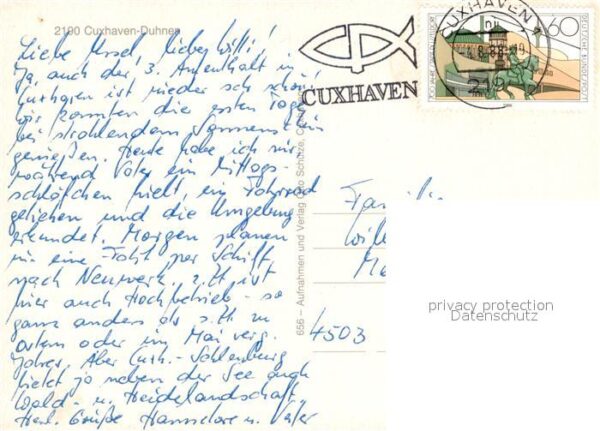 2190 Cuxhaven-Duhnen
Liebe Ursel, lieber Willi!
Ja, auch der 3. Aufenthalt in
Cuxhaven ist wieder sehr schön!
Wir konnten die ersten Tage
bei strahlendem Sonnenschein
genießen. Heute habe ich mir,
während Vater ein Mittags-
schläfchen hielt, ein Fahrrad
geliehen und die Umgebung
erkundet. Morgen planen
wir eine Fahrt per Schiff
nach Neuwerk. z.Zt ist
hier auch Hochbetrieb - so
ganz anders als z.Zt zu
Ostern oder im Mai verg.
Jahres. Aber Cuxh.-Sahlenburg
bietet ja neben der See auch
Wald- u. Heidelandschaft.
Herzl. Grüße Hannelore u. Vater
656 – Aufnahmen und Verlag Otto Schütze,
CUXHAVEN
CUXHAVEN 1
60
DEUTSCHE BUNDESPOST
Fam
Wil
4503
privacy protection
Datenschutz